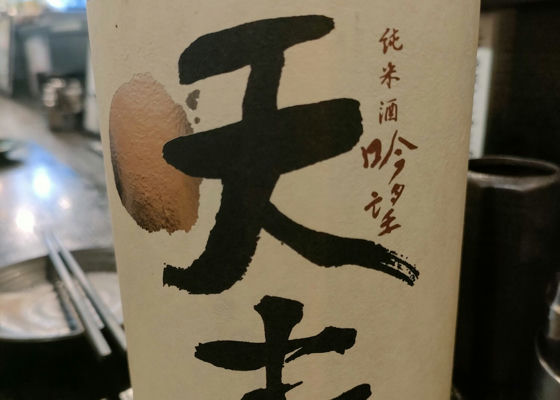 純米酒
吟望
天